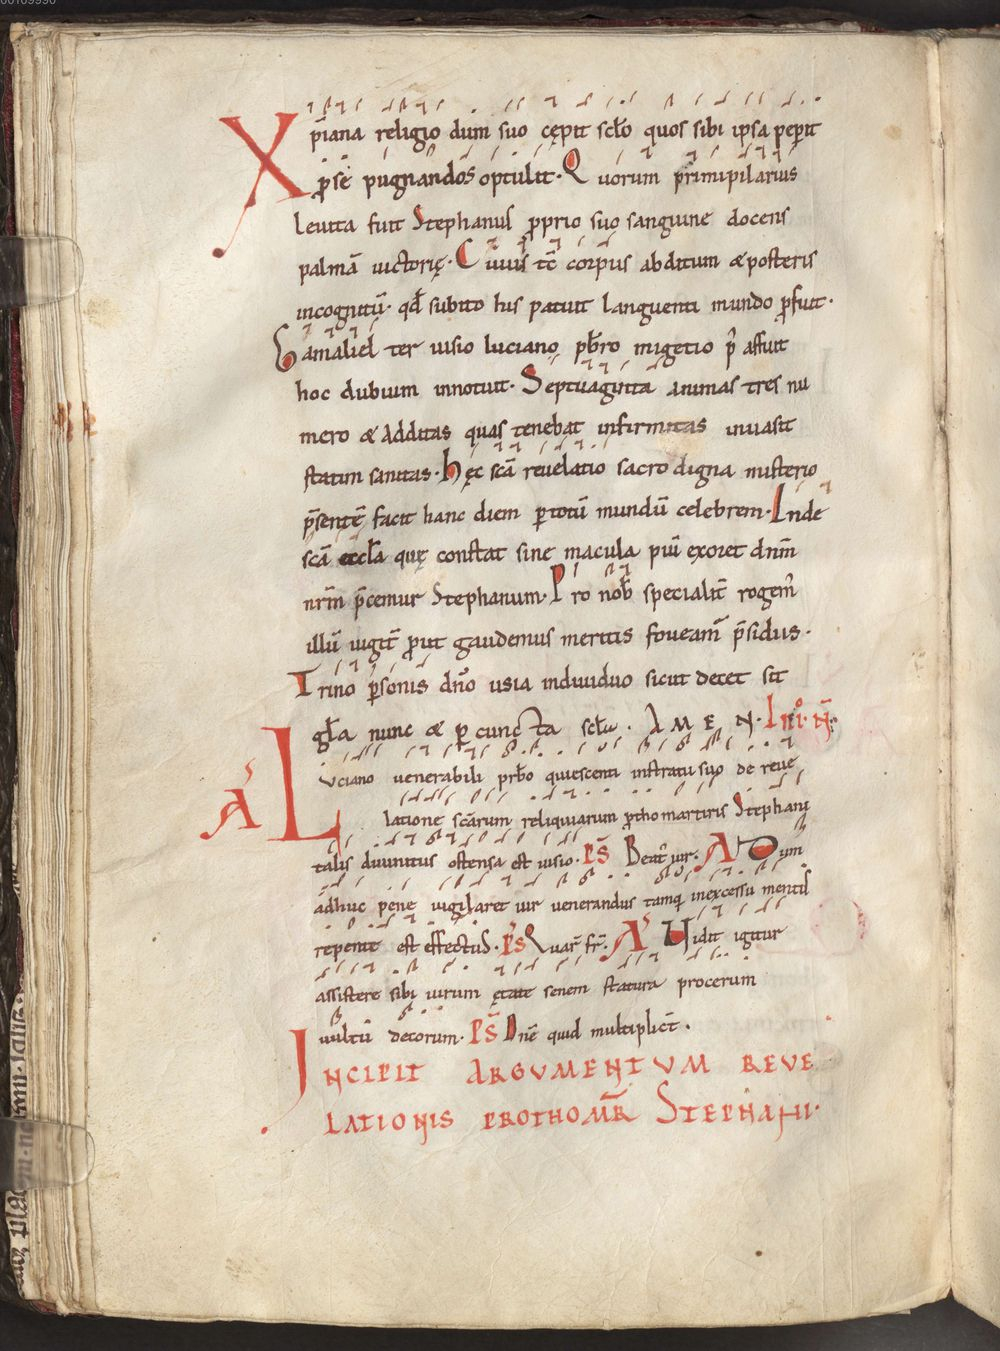 Xp̄iana religio dum suo cępit scło quos sibi ipsa peperit
p̱ se pugnandos optulit. Quorum primipilarius
leuita fuit Stephanus p̱prio suo sanguine docens
palmā uictorię. Cuius t̄c corpus abditum & posteris
incognitū. qđ subito his patuit languenti mundo p̱fuit.
Gamaliel ter uisio luciano pb̄ro migetio p̄ affuit
hoc dubium innotuit. Septuaginta animas tres nu
mero & additas quas tenebat infirmitas inuasit
statim sanitas. hęc scā reuelatio sacro digna misterio
p̄sentē facit hanc diem p̱ totū mundū celebrem. Inde
scā eccła quę constat sine macula piū exoret dn̄m
nr̄m p̄cemur Stephanum. Pro nob̄ specialit̄ rogem̄
illū iugit̄ p̱ut gaudemus meritis foueam̄ p̄sidus.
Trino p̱sonis dn̄o usia indiuiduo sicut decet sit
gła nunc & p̱ cuncta scła. AMEN. IN I. N̄.
A LUciano uenerabili prb̄o quiescenti in stratu suo de reue
latione scārum reliquiarum p̱thomartiris Stephani
talis diuinitus ostensa est uisio. PS̄ Beat̄ uir. A Dum
adhuc pene uigilaret uir uenerandus tamq̄ in excessu mentis
repente est effectus. PS̄ Quar̄ fr̄. A Uidit igitur
assistere sibi uirum ętate senem statura procerum
uultū decorum. PS̄ Dn̄e quid multiplicat̄.
INCIPIT ARGVMENTVM REVE
LATIONIS PROTHOMR̄ STEPHANI.